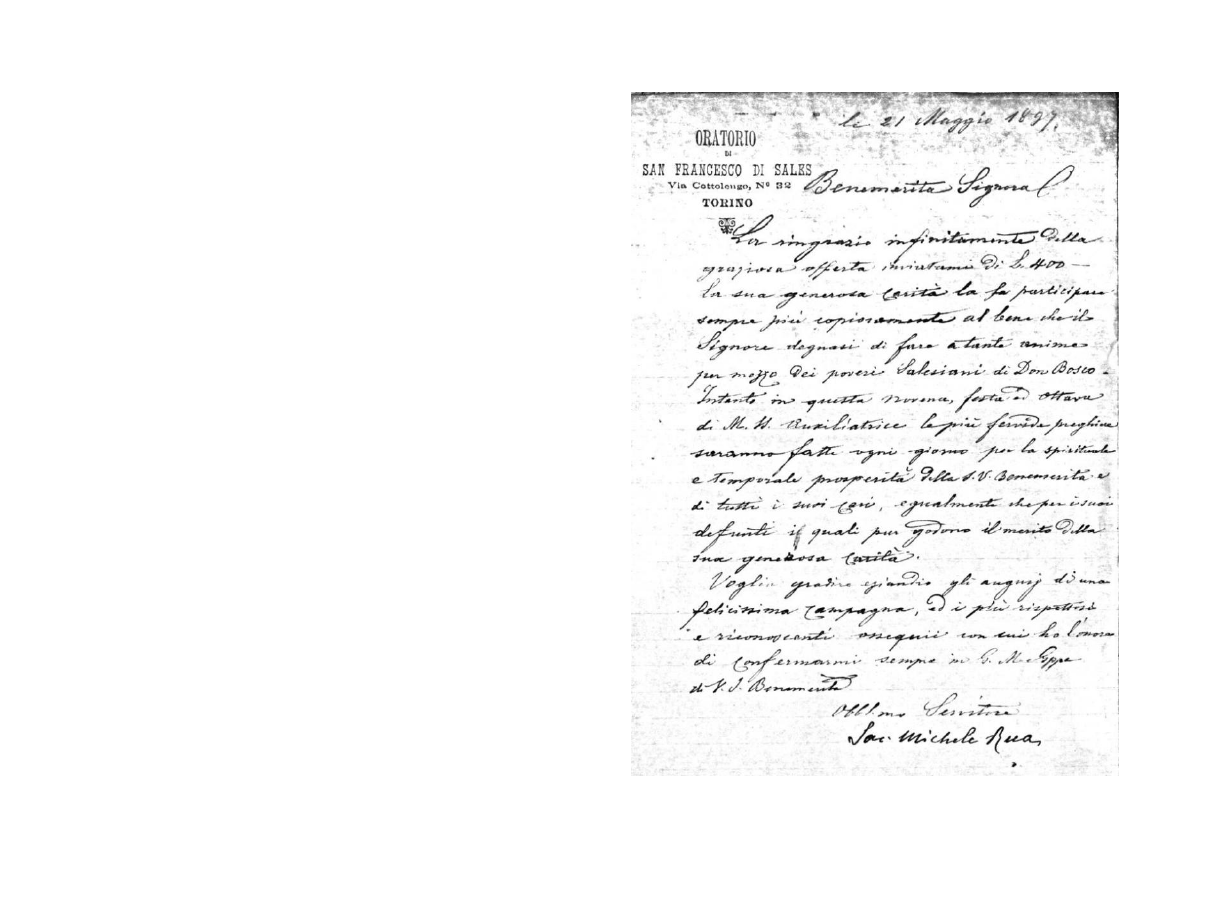 li 21 Maggio 1897.
ORATORIO
DI
SAN FRANCESCO DI SALES
Via Cottolengo, Nº 32
TORINO
Benemerita Signora
La ringrazio infinitamente della
graziosa offerta inviatami di L. 400 —
La sua generosa carità la fa partecipare
sempre più copiosamente al bene che il
Signore degnasi di fare a tante anime
per mezzo dei poveri Salesiani di Don Bosco.
Intanto in questa novena, festa ed ottava
di M. SS. Ausiliatrice le più fervide preghiere
saranno fatte ogni giorno per la spirituale
e temporale prosperità della S. V. Benemerita e
di tutti i suoi cari, egualmente che per i suoi
defunti i quali pur godono il merito della
sua generosa carità.
Voglia gradire eziandio gli augurj di una
felicissima campagna, ed i più rispettosi
e riconoscenti ossequii con cui ho l'onore
di confermarmi sempre in G. M. e Gppe
di V. S. Benemerita
Obbl.mo Servitore
Sac. Michele Rua